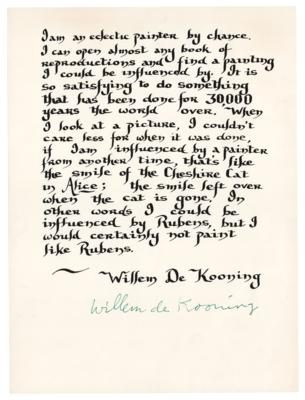 I am an eclectic painter by chance.
I can open almost any book of
reproductions and find a painting
I could be influenced by. It is
so satisfying to do something
that has been done for 30,000
years the world over. When
I look at a picture, I couldn't
care less for when it was done,
if I am influenced by a painter
from another time, that's like
the smile of the Cheshire Cat
in Alice; the smile left over
when the cat is gone. In
other words I could be
influenced by Rubens, but I
would certainly not paint
like Rubens.
~ Willem De Kooning
Willem de Kooning